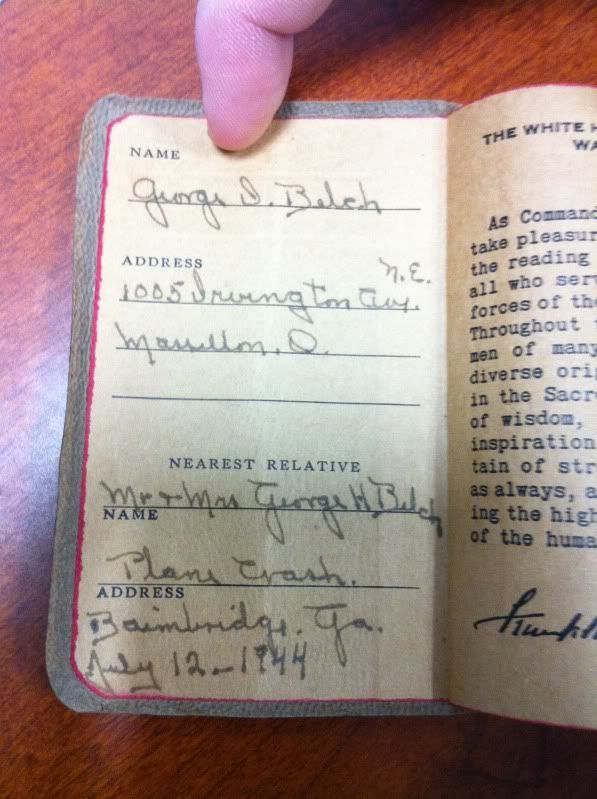 NAME
George D. Belch
ADDRESS
N.E.
1005 Irvington Ave.
Massillon, O.
NEAREST RELATIVE
Mr & Mrs George H. Belch
NAME
Plane Crash.
ADDRESS
Baimbridge, Ga.
July 12-1944
THE WHITE
WA
As Command
take pleasur
the reading
all who serv
forces of the
Throughout
men of many
diverse orig
in the Sacre
of wisdom,
inspiration
tain of str
as always, a
ing the high
of the huma